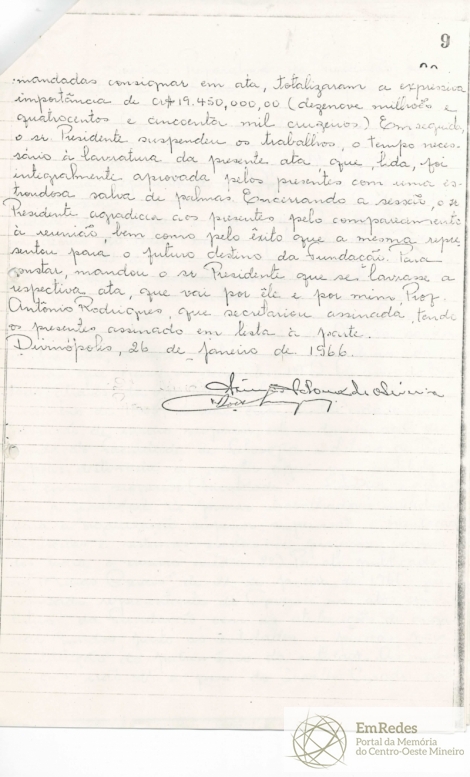 9
mandadas consignar em ata, totalizaram a expressiva
importância de Cr$ 19.450.000,00 (dezenove milhões e
quatrocentos e cincoenta mil cruzeiros) Em seguida,
o sr. Presidente suspendeu os trabalhos, o tempo neces-
sário à lavratura da presente ata, que, lida, foi
integralmente aprovada pelos presentes com uma es-
trondosa salva de palmas. Encerrando a sessão, o sr.
Presidente agradeceu aos presentes pelo comparecimento
à reunião, bem como pelo êxito que a mesma repre-
sentou para o futuro destino da fundação. Para
constar, mandou o sr. Presidente que se lavrasse a
respectiva ata, que vai por êle e por mim, Prof.
Antônio Rodrigues, que secretariou assinada, tendo
os presentes assinado em lista à parte.
Divinópolis, 26 de janeiro de 1966.
de Oliveira
EmRedes
Portal da Memória
do Centro-Oeste Mineiro